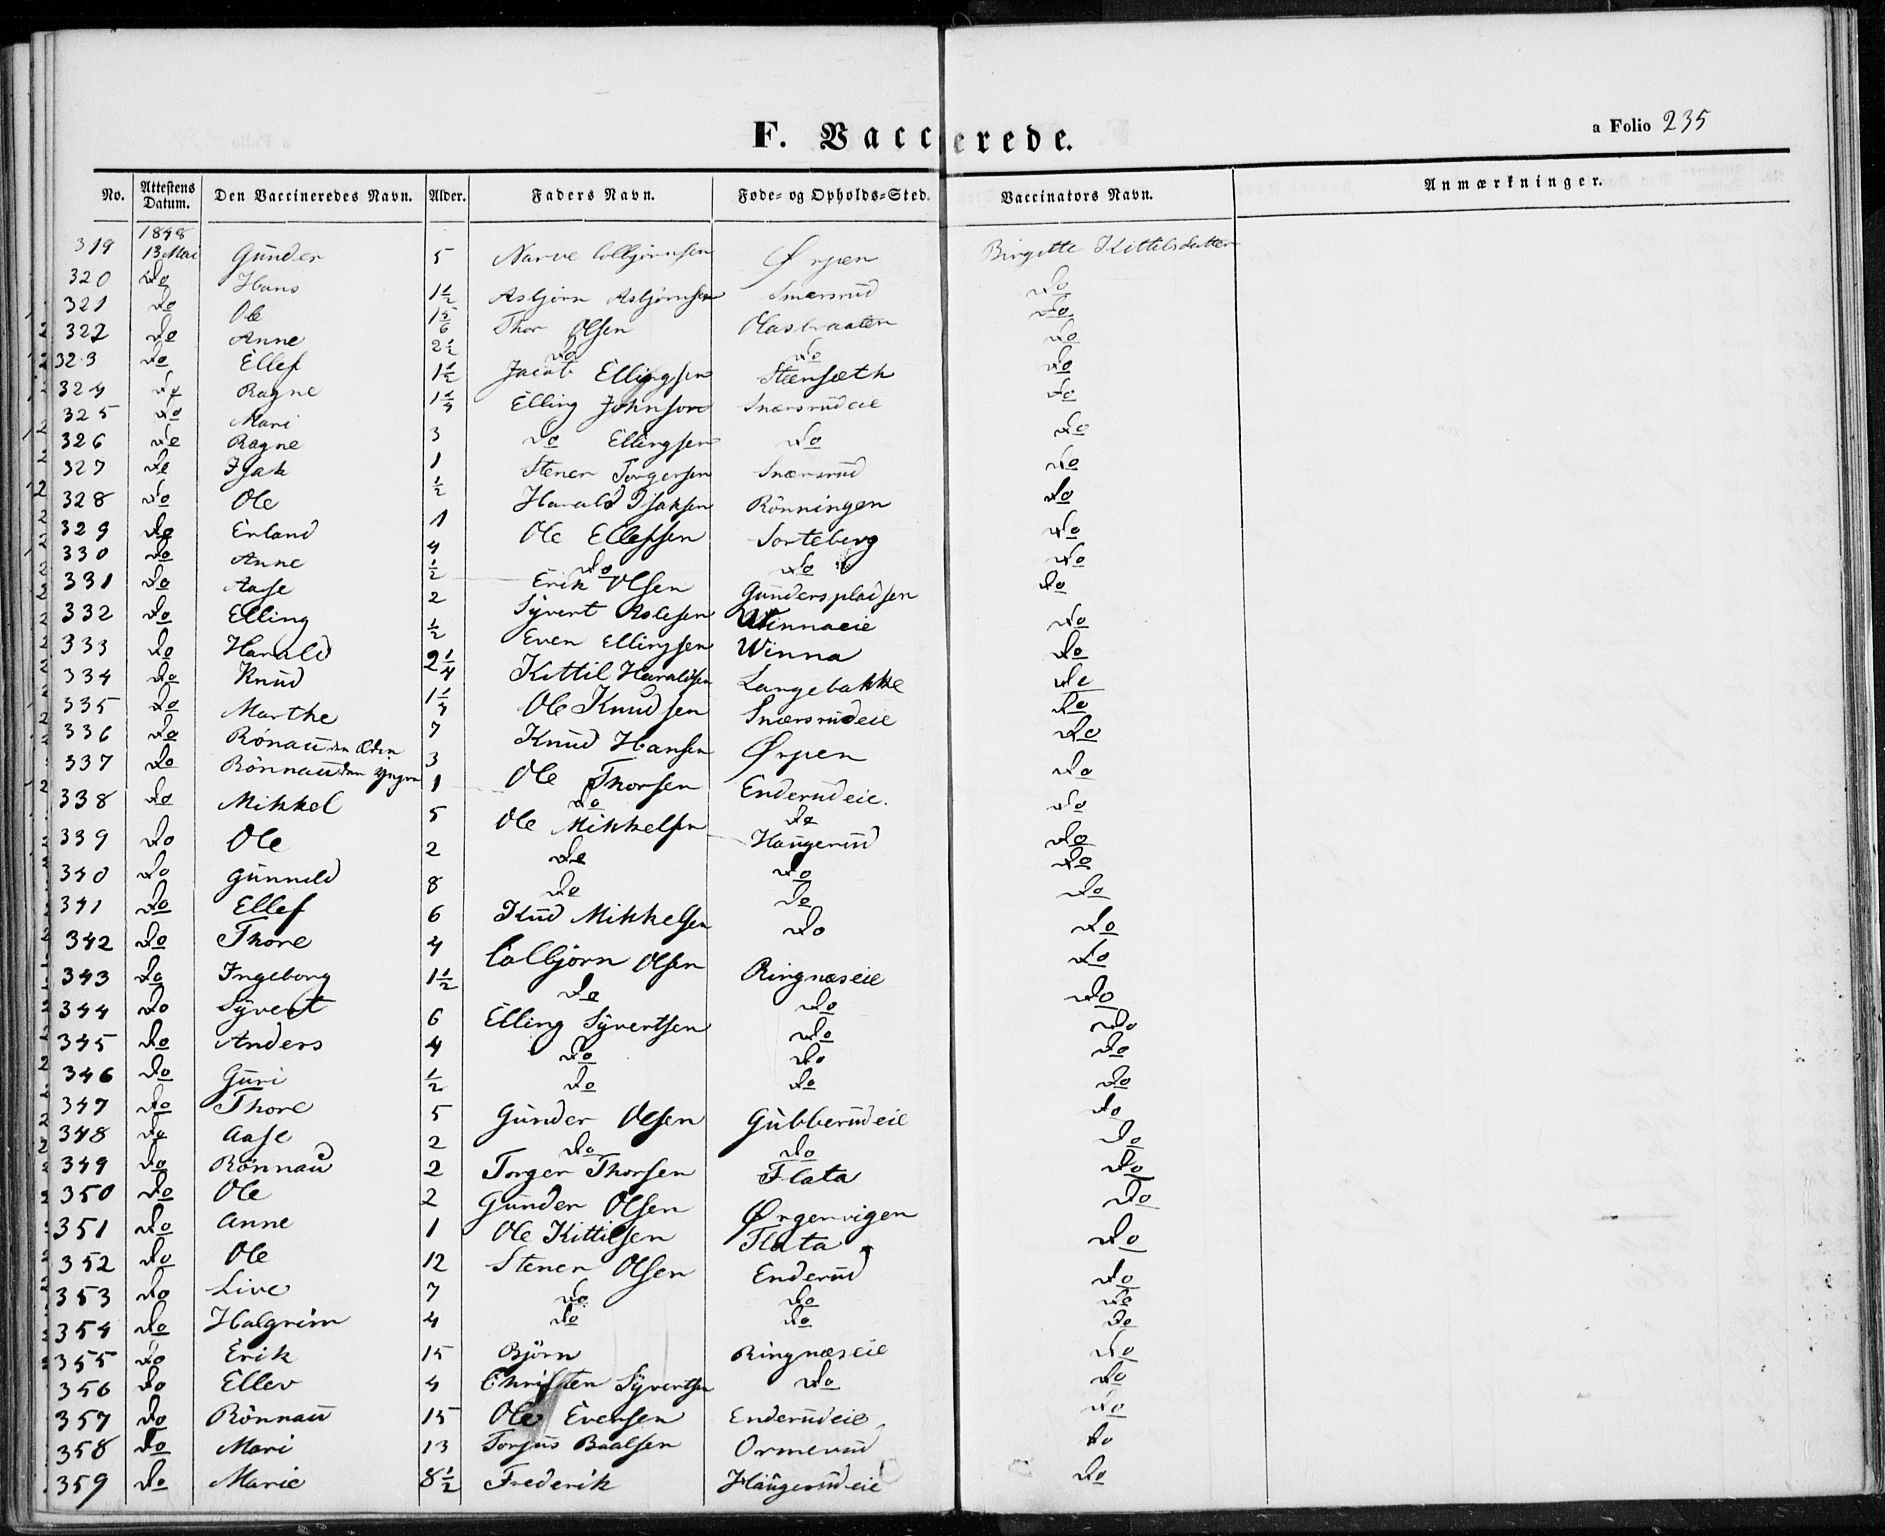 a Folio 235
F. Vaccinerede.
No. Attestens Datum. Den Vaccineredes Navn. Alder. Faders Navn. Føde- og Opholds-Sted. Vaccinators Navn. Anmærkninger.
1848
319 13 Mai Gunder 5 Narve Colbjørnsen Ørpen Birgitte Kittelsdatter
320 Do Hans 1½ Asbjørn Asbjørnsen Snærsrud Do
321 Do Ole 1 5/6 Thor Olsen Olasbraaten Do
322 Do Anne 2½ Do Do Do
323 Do Ellef 1½ Jacob Ellingsen Stensæth Do
324 Do Ragne 1¼ Elling Johnson Snærsrudeie Do
325 Do Mari 3 Do Ellingsen Do Do
326 Do Ragne 1 Stener Torgersen Snærsrud Do
327 Do Isak ½ Harald Isaksen Rönningen Do
328 Do Ole 1 Ole Ellefsen Sorteberg Do
329 Do Erland 4 Do Do Do
330 Do Anne ½ Erik Olsen Gunderspladsen Do
331 Do Aase 2 Syvert Aslesen Winnaeie Do
332 Do Elling ½ Even Ellingsen Winna Do
333 Do Harald 2¼ Kittil Haraldsen Langebakke Do
334 Do Knud 1¼ Ole Knudsen Snærsrudeie Do
335 Do Marthe 7 Knud Hansen Ørpen Do
336 Do Rönau den Ældre 3 Ole Thorsen Enderudeie. Do
337 Do Rönnau den yngre 1 Do Do Do
338 Do Mikkel 5 Ole Mikkelsen Haugerud Do
339 Do Ole 2 Do Do Do
340 Do Gunnild 8 Do Do Do
341 Do Ellef 6 Knud Mikkelsen Do Do
342 Do Thore 4 Colbjørn Olsen Ringnæseie Do
343 Do Ingeborg 1½ Do Do Do
344 Do Syvert 6 Elling Syvertsen Do Do
345 Do Anders 4 Do Do Do
346 Do Guri ½ Do Do Do
347 Do Thore 5 Gunder Olsen Gubberudeie Do
348 Do Aase 2 Do Do Do
349 Do Rönnau 2 Torger Thorsen Flata Do
350 Do Ole 2 Gunder Olsen Ørgenvigen Do
351 Do Anne 1 Ole Kittilsen Flata Do
352 Do Ole 12 Stener Olsen Enderud Do
353 Do Live 7 Do Do Do
354 Do Halgrim 4 Do Do Do
355 Do Erik 15 Björn Ringnæseie Do
356 Do Ellev 4 Christen Syvertsen Do Do
357 Do Rönnau 15 Ole Evensen Enderudeie Do
358 Do Mari 13 Torjus Baalsen Ormerud Do
359 Do Marie 8½ Frederik Haugerudeie Do